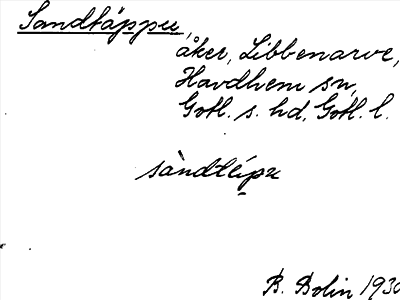 Sandtäppu,
åker, Libbenarve,
Havdhem sn,
Gotl. s. hd, Gotl. l.
sàndtépu
B. Bolin 1930